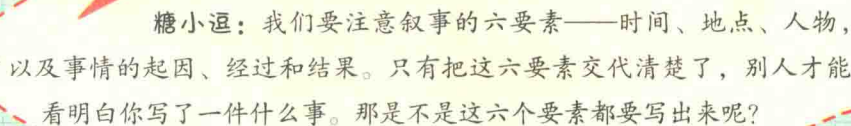 糖小逗：我们要注意叙事的六要素——时间、地点、人物，
以及事情的起因、经过和结果。只有把这六要素交代清楚了，别人才能
看明白你写了一件什么事。那是不是这六个要素都要写出来呢？